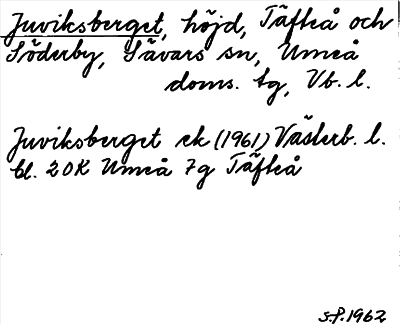 Juviksberget, höjd, Täfteå och
Söderby, Sävars sn, Umeå
doms. tg, Vb. l.
Juviksberget ek (1961) Västerb. l.
bl. 20K Umeå 7g Täfteå
S.P. 1962